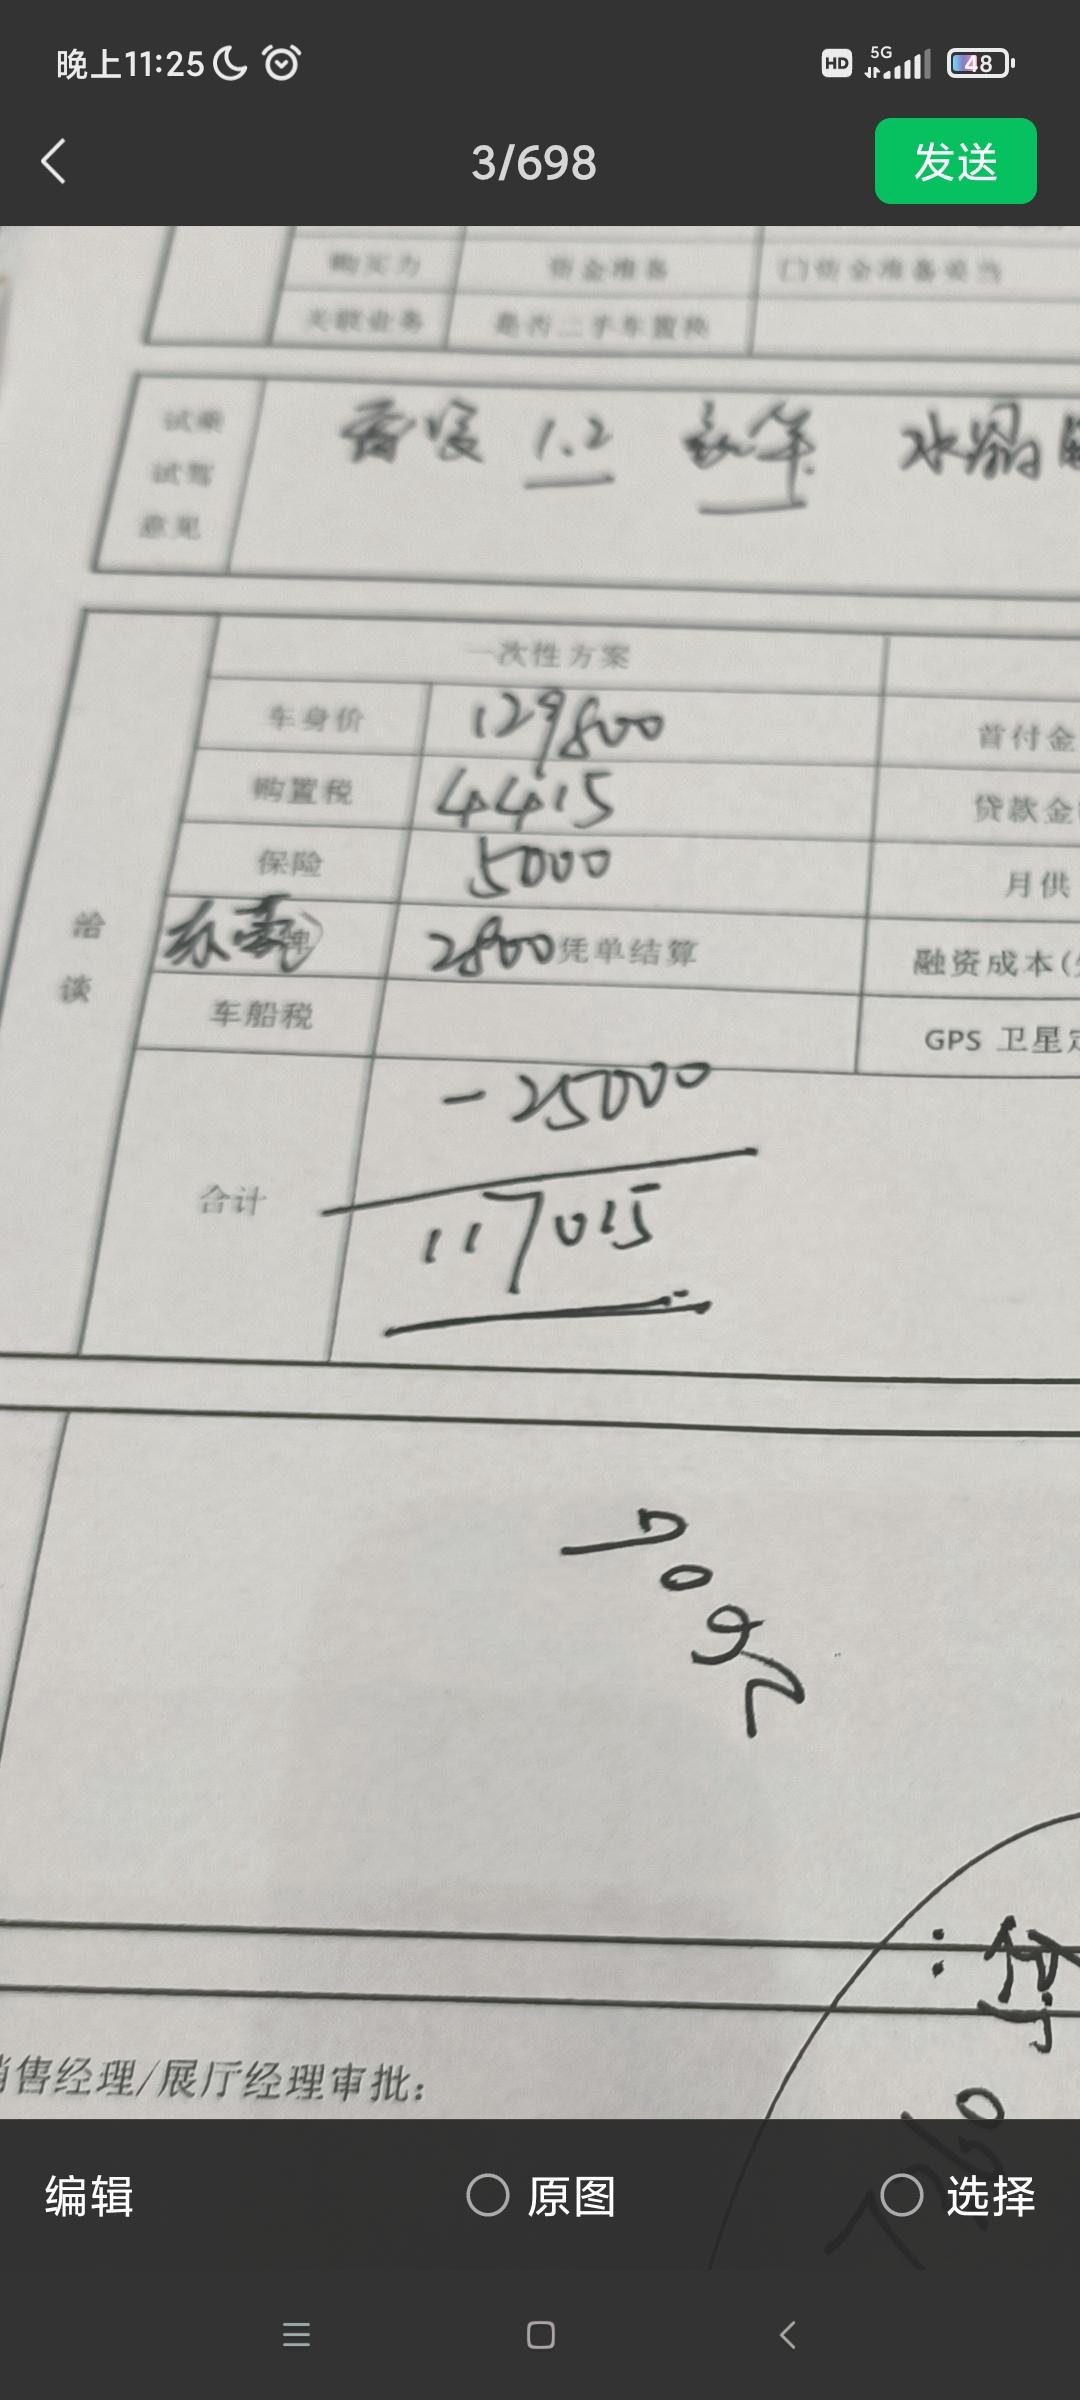 晚上11:25 HD 5G 48
3/698 发送
购买力 资金准备 资金准备妥当
关联业务 是否二手车置换
试乘 1.2 水晶
试驾
意见
一次性方案
车身价 129800 首付金
购置税 4415 贷款金
保险 5000 月供
牌 2800 凭单结算 融资成本(
洽
谈
车船税 GPS 卫星定
-25000
合计 117015
销售经理/展厅经理审批:
编辑 原图 选择